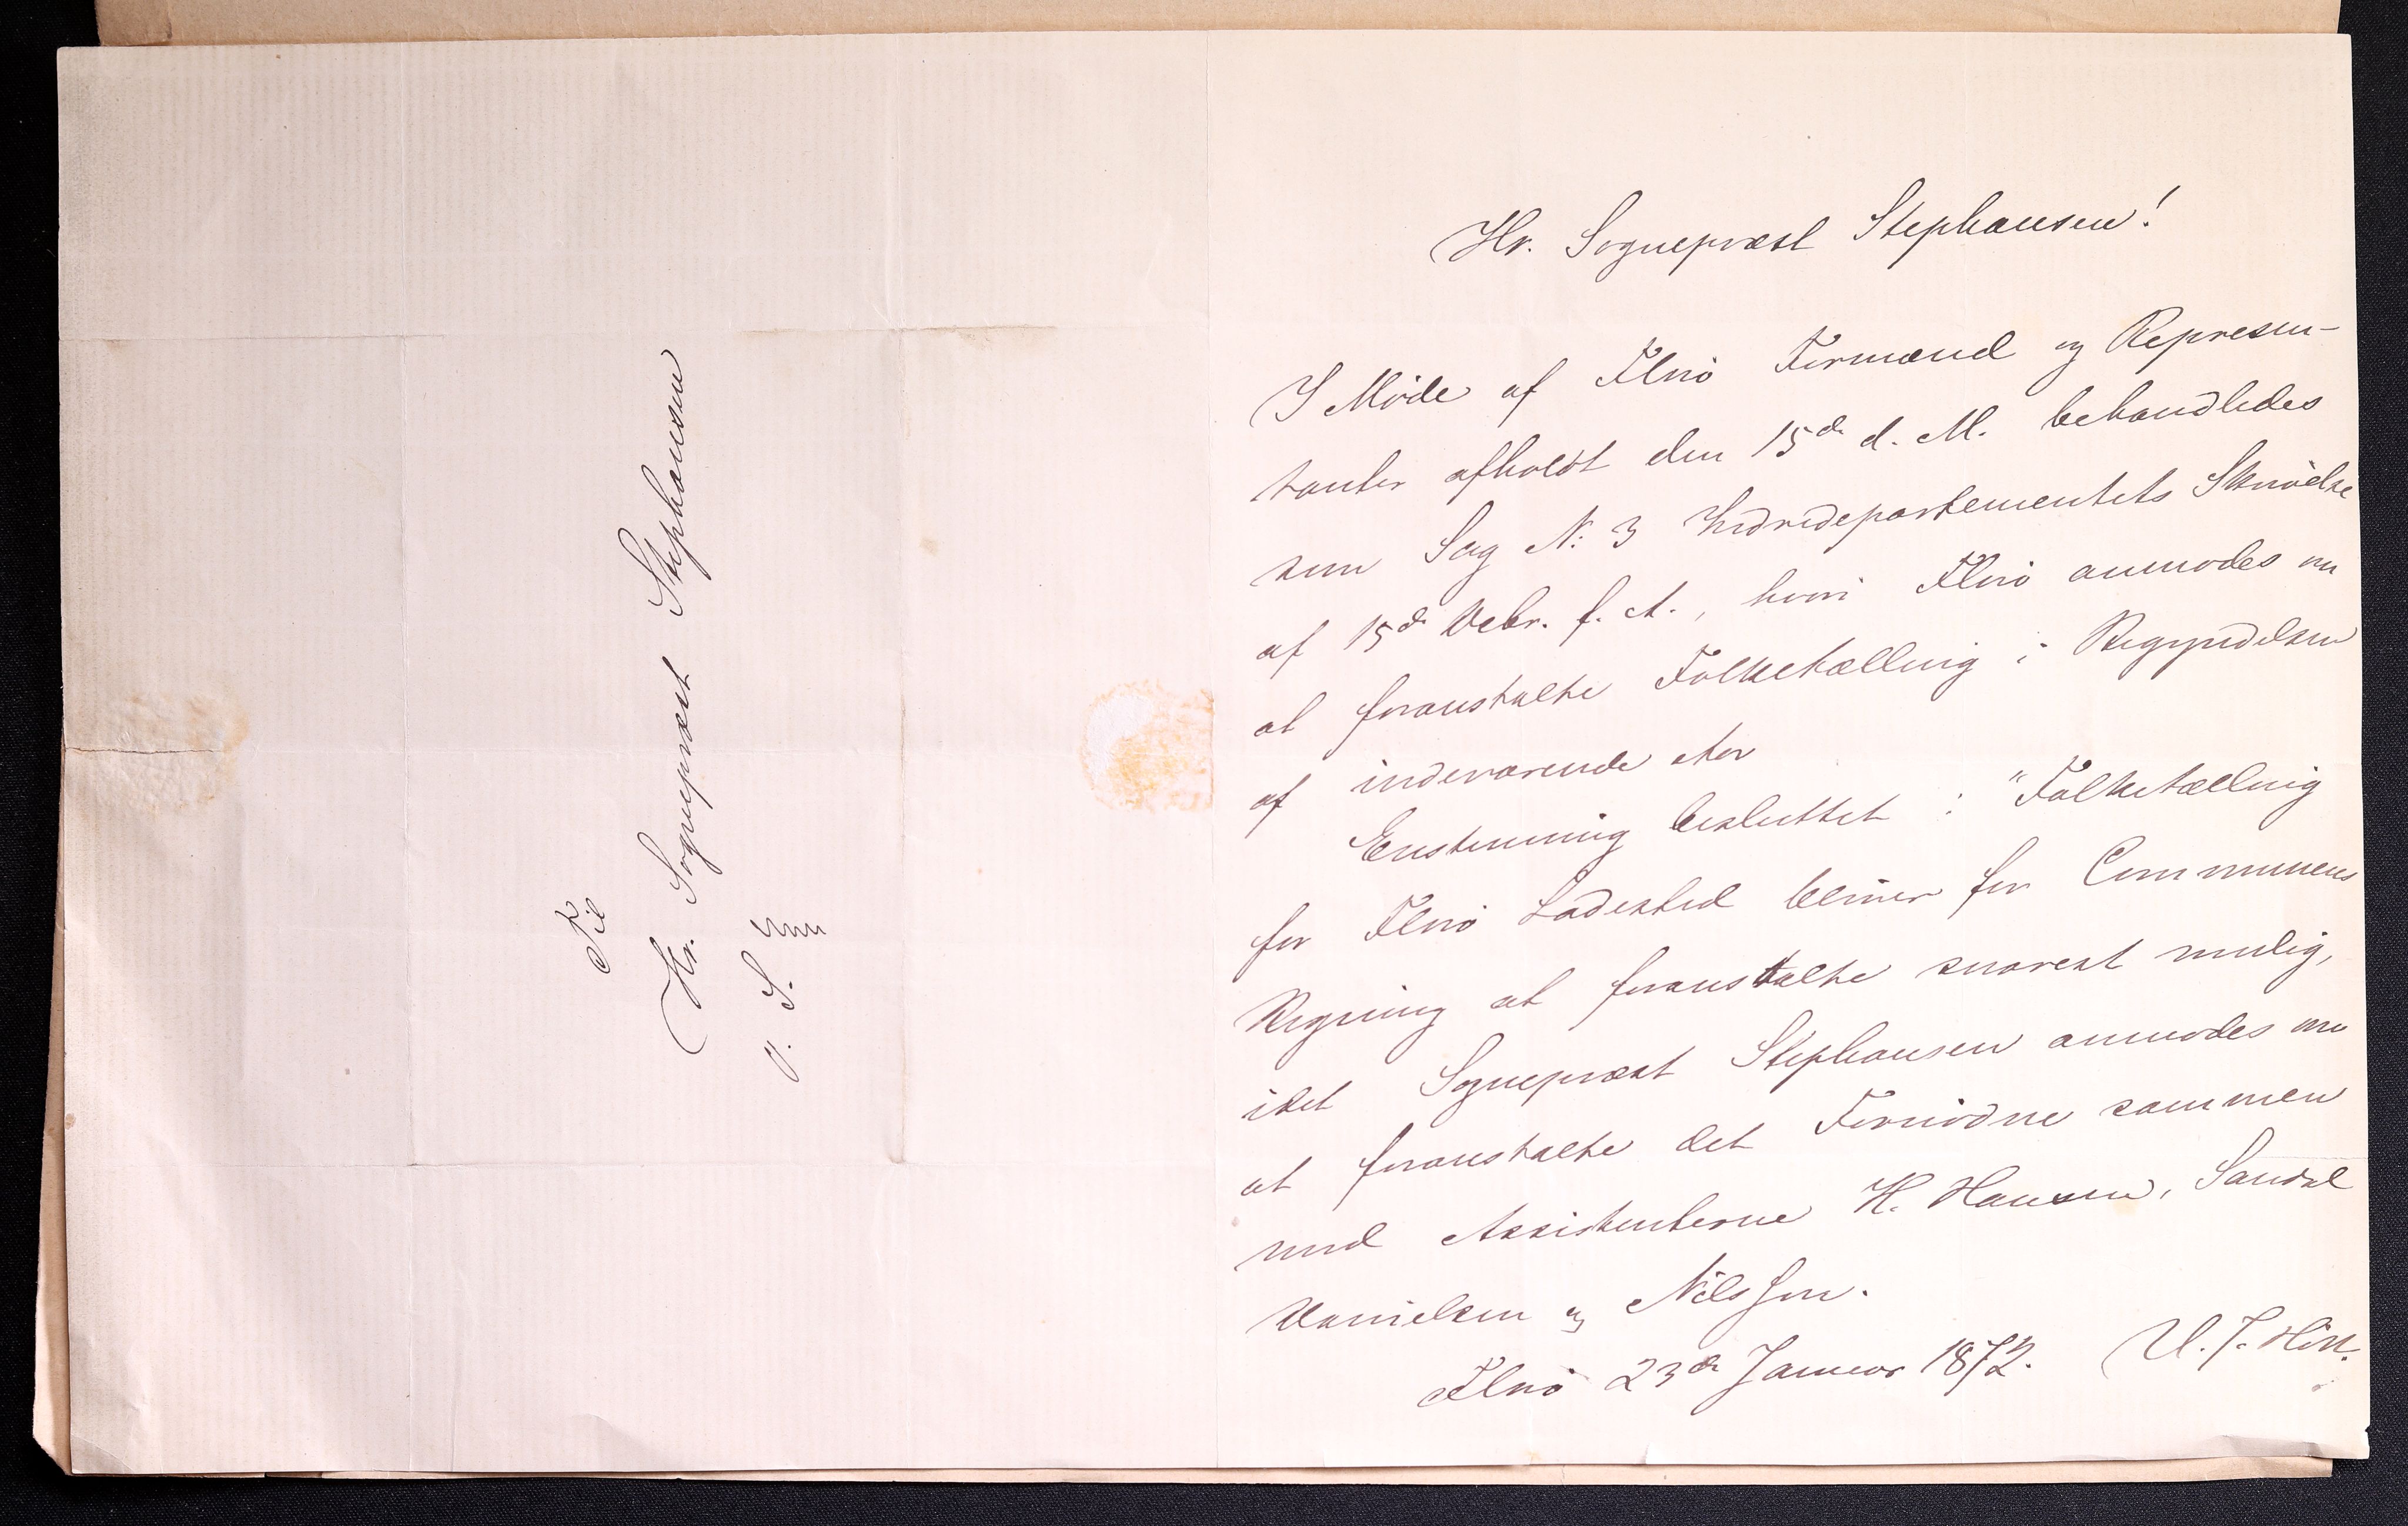 Til
Hr. Sogneprest Stephansen
Hr. Sogneprest Stephansen!
I Møde af Florø Formænd og Represen-
tanter afholdt den 15de d. M. behandledes
som Sag No: 3 Indredepartementets Skrivelse
af 15de Debr. f. A., hvori Florø anmodes om
at foranstalte Folketælling i Begyndelsen
af indeværende Aar
Enstemmig besluttet: "Folketælling
for Florø Ladested bliver for Communens
Regning at foranstalte snarest mulig,
idet Sogneprest Stephansen anmodes om
at foranstalte det Fornødne sammen
med Assistenterne H. Hansen, Sandal
Danielsen og Nils Jon.
Florø 23de Januar 1872.